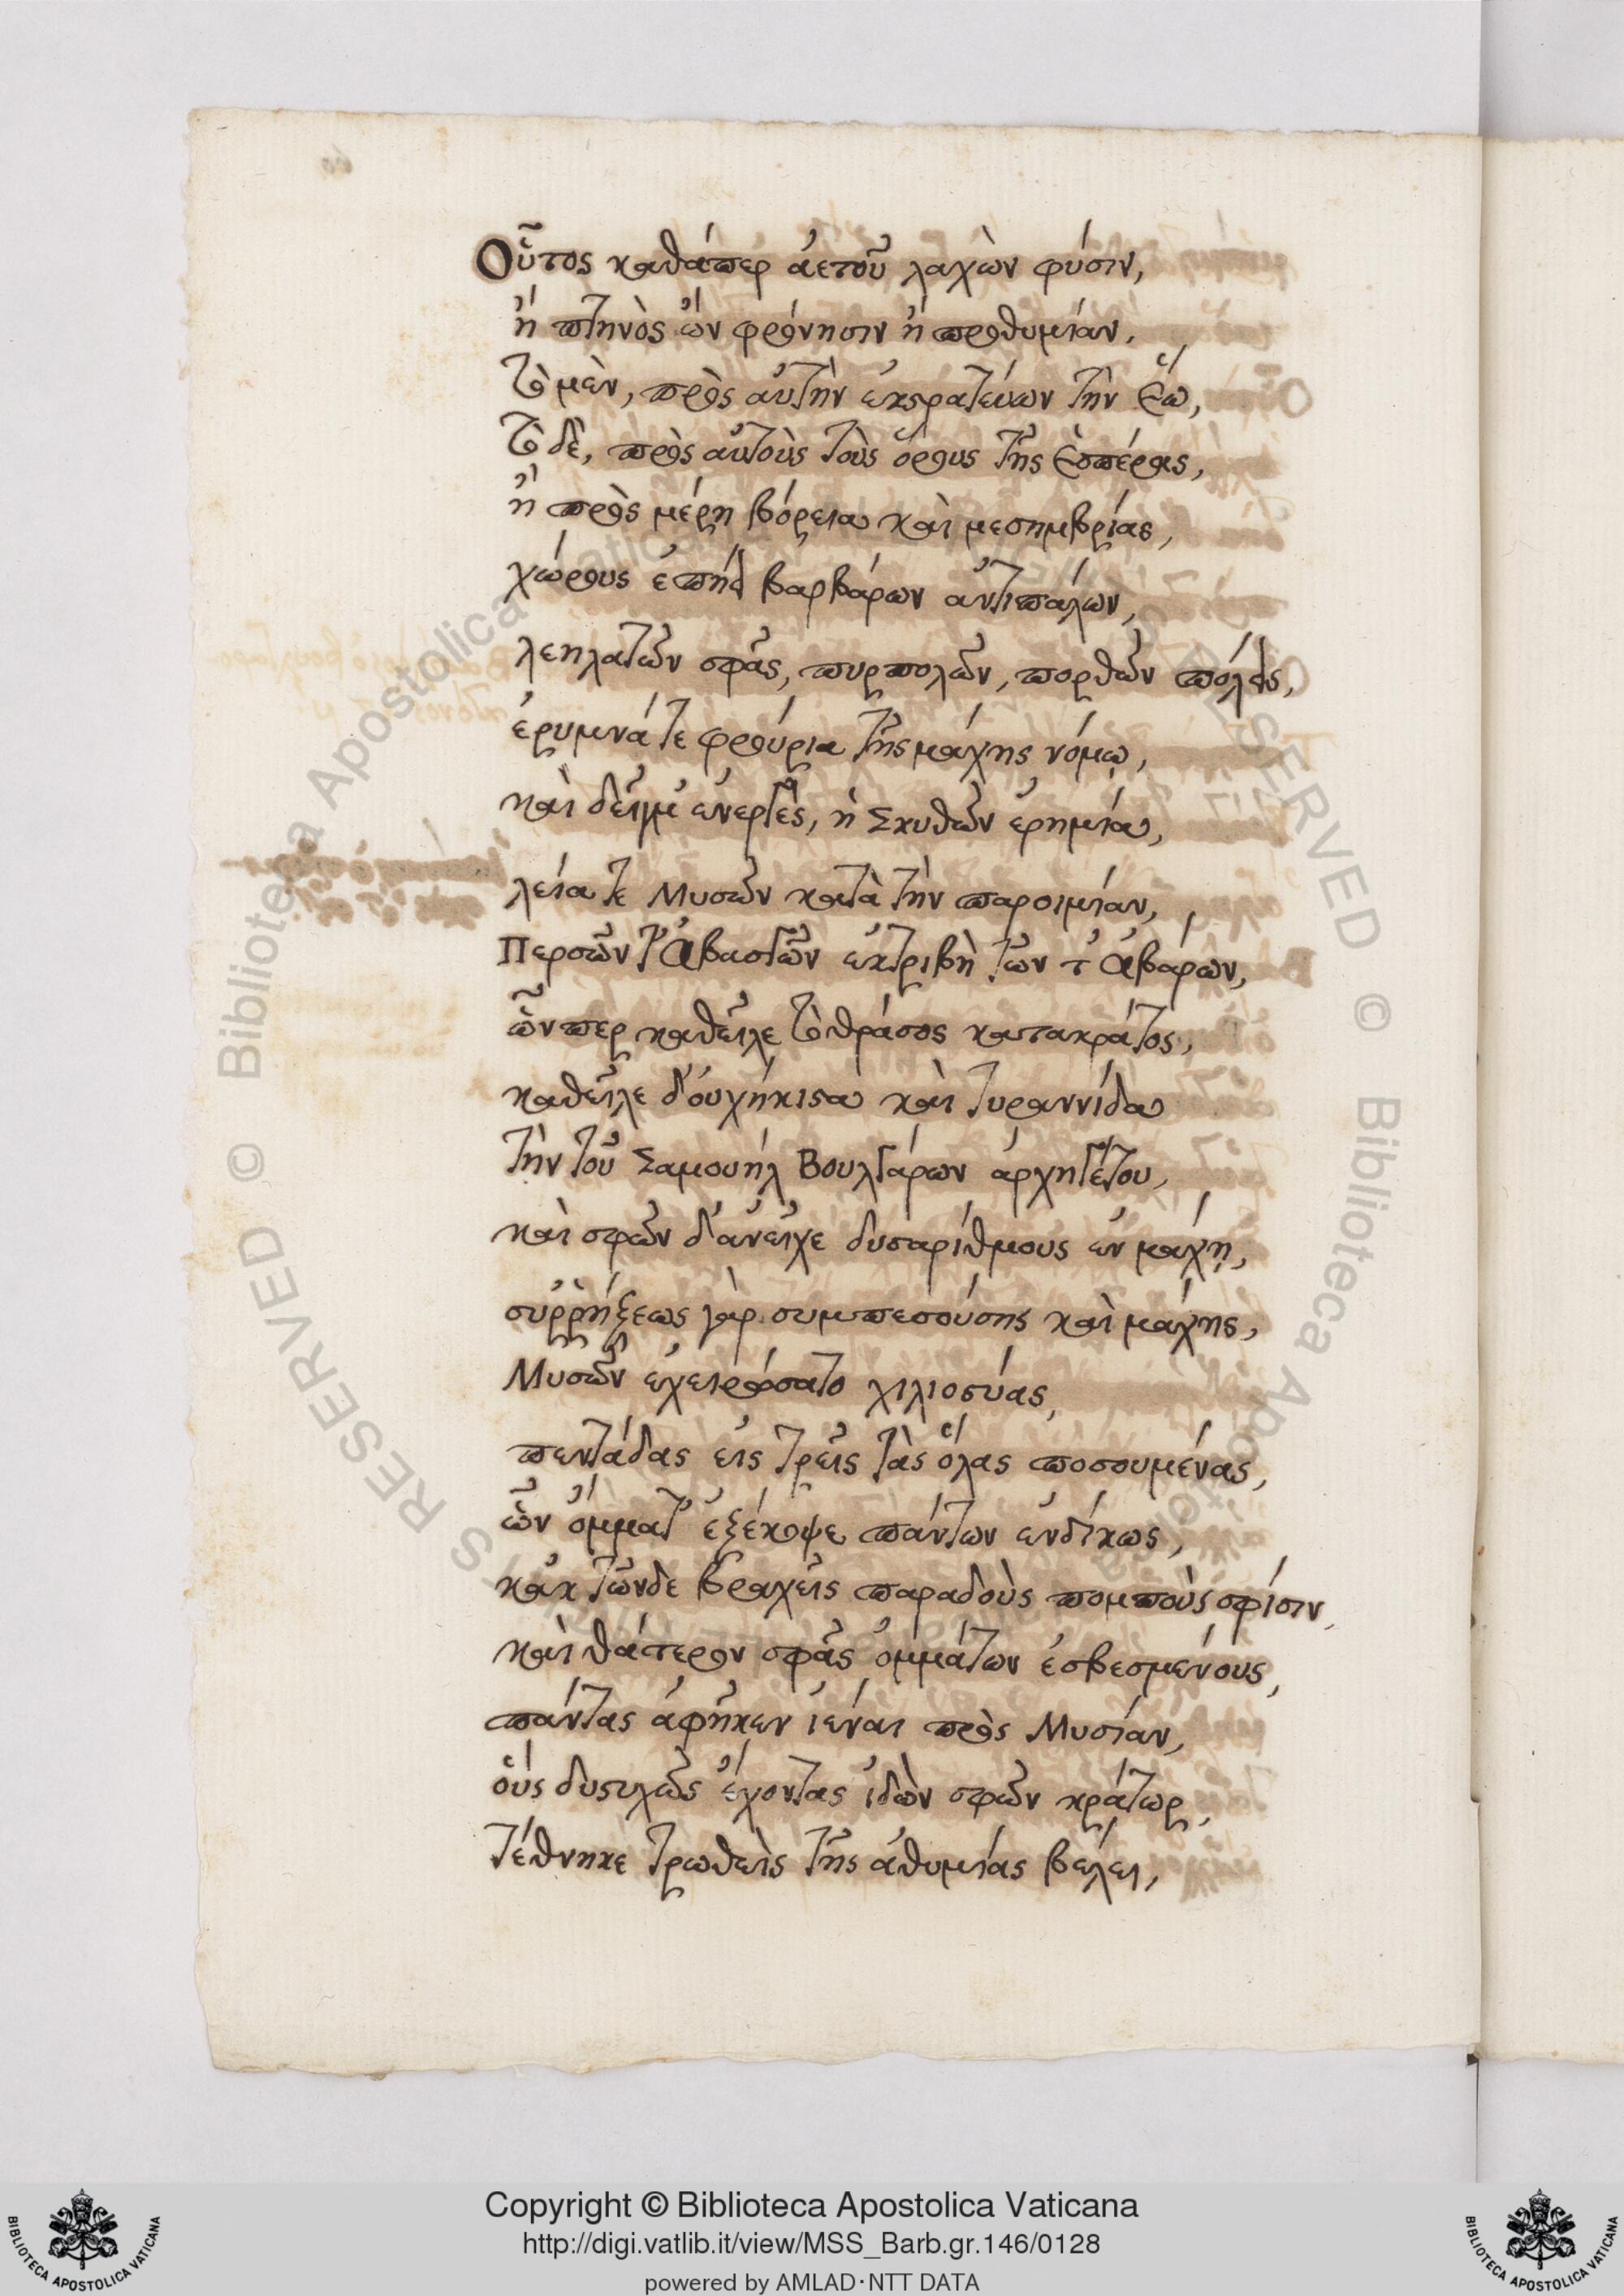 Οὗτος καθάπερ ἀετοῦ λαχὼν φύσιν,
ἢ πτηνὸς ὢν φρόνησιν ἢ προθυμίαν,
τὸ μὲν, πρὸς αὐτὴν ἐκστρατεύων τὴν ἕω,
τὸ δὲ, πρὸς αὐτοὺς τοὺς ὅρους τῆς ἑσπέρας,
ἢ πρὸς μέρη βόρεια καὶ μεσημβρίας,
χώρους ἐπῄει βαρβάρων ἀντιπάλων,
λεηλατῶν σφᾶς, πυρπολῶν, πορθῶν πόλεις,
ἐρυμνά τε φρούρια τῆς μάχης νόμῳ,
καὶ δεῖγμ' ἐνεργὲς, ἡ Σκυθῶν ἐρημία,
λεία τε Μυσῶν κατὰ τὴν παροιμίαν,
Περσῶν τ' Ἀβασγῶν ἐκτριβὴ τῶν τ' Ἀβάρων,
ὧνπερ καθεῖλε τὸ θράσος κατακράτος,
καθεῖλε δ' οὐχήκιστα καὶ τυραννίδα
τὴν τοῦ Σαμουὴλ Βουλγάρων ἀρχηγέτου,
καὶ σφῶν δ' ἀνεῖχε δυσαρίθμους ἐν μάχῃ,
συῤῥήξεως γὰρ συμπεσούσης καὶ μάχης,
Μυσῶν ἐχειρώσατο χιλιοστύας,
πεντάδας εἰς τρεῖς τὰς ὅλας ποσουμένας,
ὧν ὄμματ' ἐξέκοψε πάντων ἐνδίκως,
κἀκ τῶνδε βραχεῖς παραδοὺς πομποὺς σφίσιν,
καὶ θάτερον σφᾶς ὀμμάτων ἐσβεσμένους,
πάντας ἀφῆκεν ἰέναι πρὸς Μυσίαν,
οὓς δυστυχῶς ἔχοντας ἰδὼν σφῶν κράτωρ,
τέθνηκε τρωθεὶς τῆς ἀθυμίας βέλει,
Biblioteca Apostolica Vaticana © Biblioteca Apostolica Vaticana © ALL RIGHTS RESERVED
Copyright © Biblioteca Apostolica Vaticana
http://digi.vatlib.it/view/MSS_Barb.gr.146/0128
powered by AMLAD·NTT DATA
BIBLIOTECA APOSTOLICA VATICANA
BIBLIOTECA APOSTOLICA VATICANA